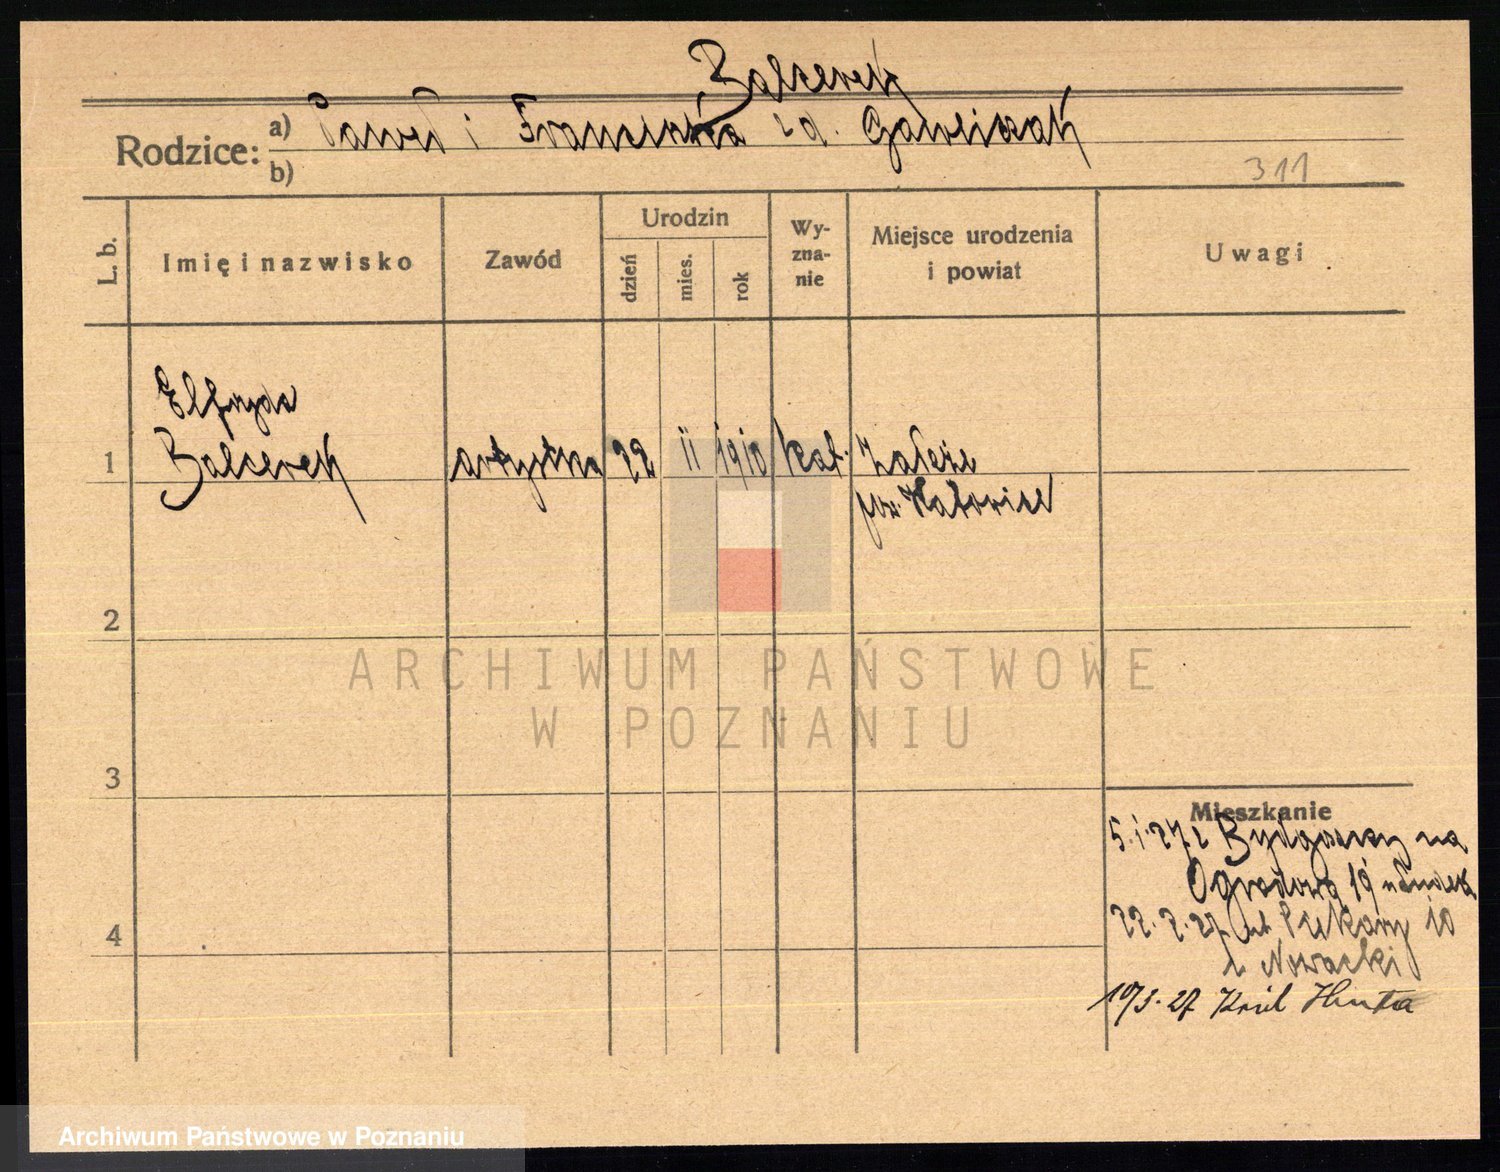 Balcerek
Rodzice: a) Paweł i Franciszka z d. Gawliczak
b)
311
L. b.
Imię i nazwisko
Zawód
Urodzin
dzień
mies.
rok
Wy-
zna-
nie
Miejsce urodzenia
i powiat
Uwagi
Elfryda
1 Balcerek artystka 22 II 1910 kat. Załęże
pow. Katowice
2
ARCHIWUM PAŃSTWOWE
W POZNANIU
3
Mieszkanie
5.1.27 z Bydgoszczy na
Ogrodowa 19
4
22.2.27 Piekary 10
Nowacki
10/3.27 Król Huta
Archiwum Państwowe w Poznaniu